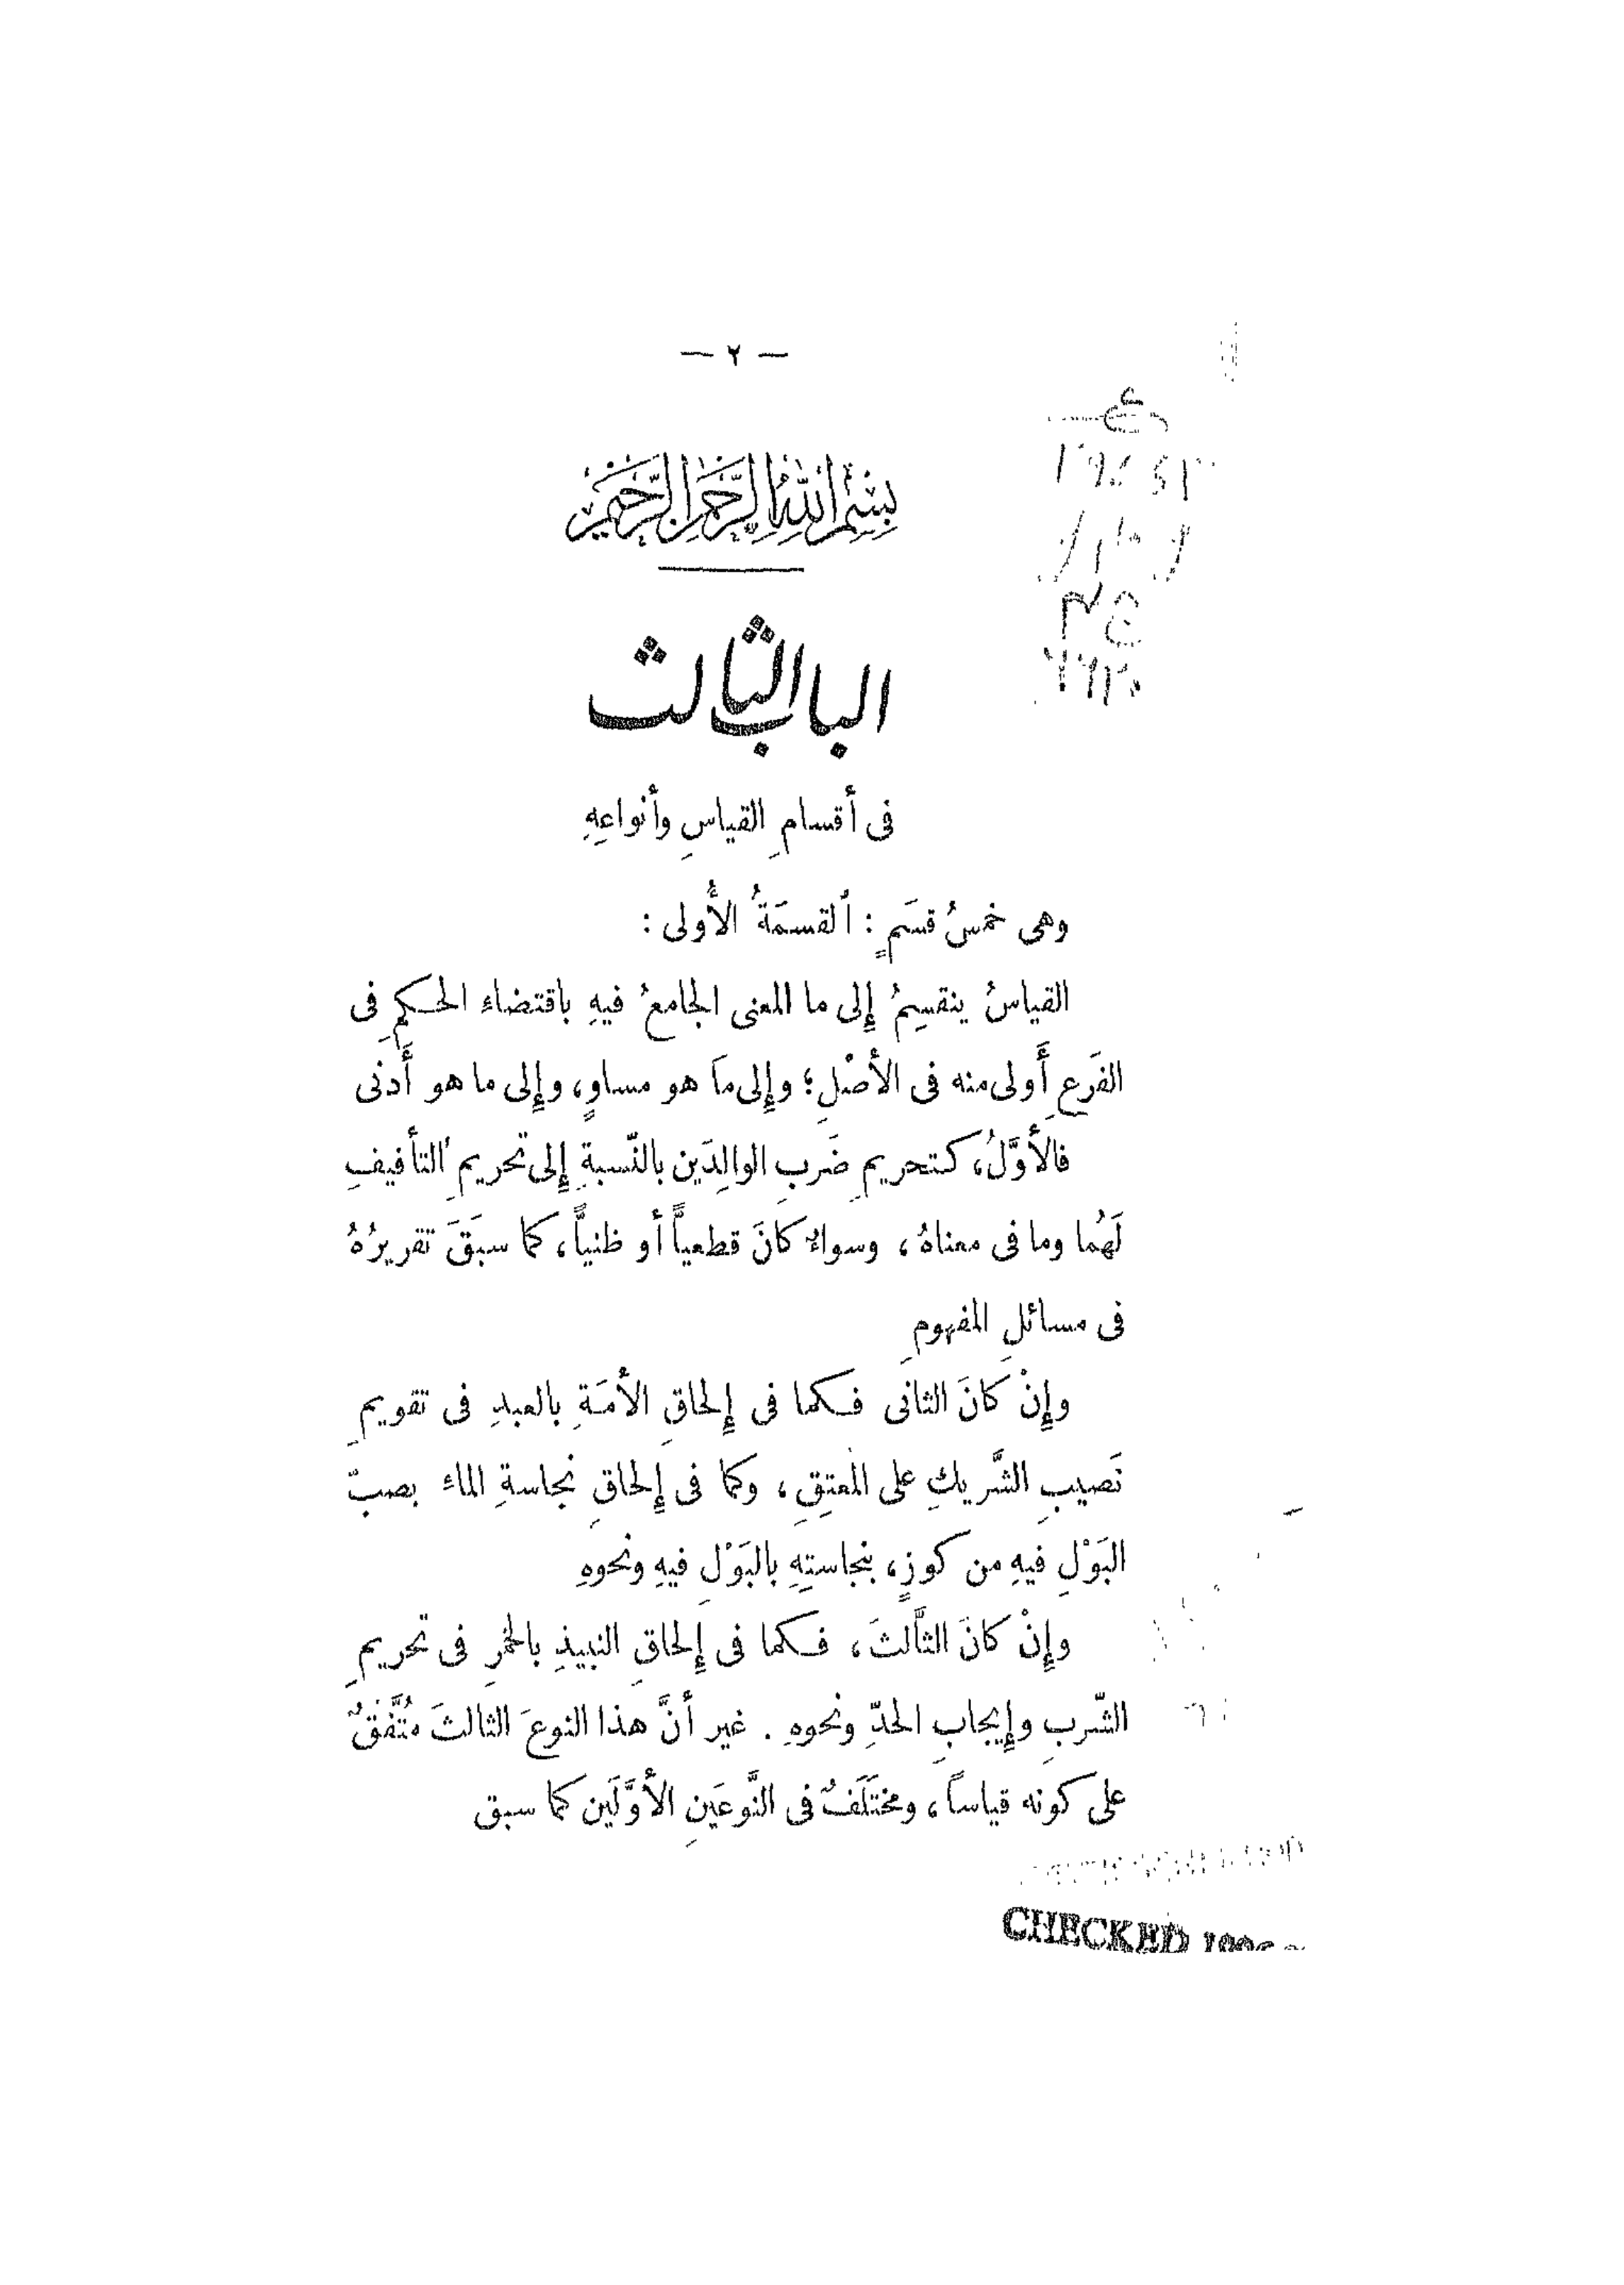 — ٢ —
بِسْمِ اللهِ الرَّحْمٰنِ الرَّحِيْمِ
الباب الثالث
فى أقسامِ القياسِ وأنواعِهِ
وهى خمسُ قسَمٍ : ٱلقسمَةُ الأُولى :
القياسُ ينقسِمُ إِلى ما المعنى الجامعُ فيهِ باقتضاء الحكمِ فى
الفَرعِ أَولى منه فى الأصْلِ؛ وإِلى مَا هو مساوٍ، وإِلى ما هو أَدنى
فالأوَّلُ، كتحريمِ ضَربِ الوالِدَين بالنّسبةِ إِلى تحريمِ التأفيفِ
لَهُما وما فى معناهُ، وسوالا كانَ قطعياًّ أو ظنياًّ، كما سبَقَ تقريرُهُ
فى مسائلِ المفهومِ
وإِنْ كانَ الثانى فكما فى إِلحاقِ الأمَةِ بالعبدِ فى تقويمِ
نَصيبِ الشَّريكِ على المعتِقِ، وكما فى إِلحاقِ نجاسةِ الماء بصبّ
البَوْلِ فيهِ من كوزٍ، بنجاستِهِ بالبَوْلِ فيهِ ونحوهِ
وإِنْ كانَ الثَّالثَ، فكما فى إِلحاقِ النبيذِ بالخمرِ فى تحريمِ
الشّربِ وإِيجابِ الحدِّ ونحوهِ . غير أنَّ هذا النوعَ الثالثَ مُتَّفَقٌ
على كونه قياساً، ومختَلَفٌ فى النَّوعَينِ الأوَّلَين كما سبق
CHECKED